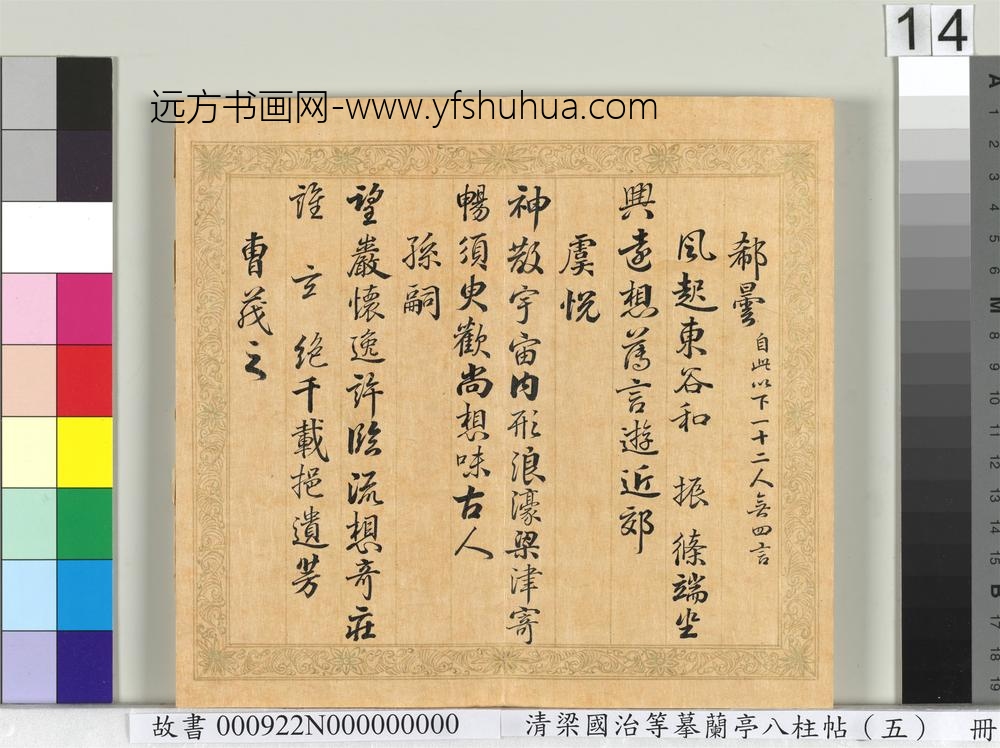 14
远方书画网-www.yfshuhua.com
郗曇 自此以下一十二人無四言
風起東谷和 振條端坐
興遠想薄言遊近郊
虞悦
神散宇宙内形浪濠梁津寄
暢須臾歡尚想味古人
孫嗣
望巖懷逸許臨流想奇莊
誰云 絶千載挹遺芳
曹茂之
故書 000922N000000000
清梁國治等摹蘭亭八柱帖（五） 冊
A 1 2 3 4 5 6 M 8 9 10 11 12 13 14 15 B 17 18 19